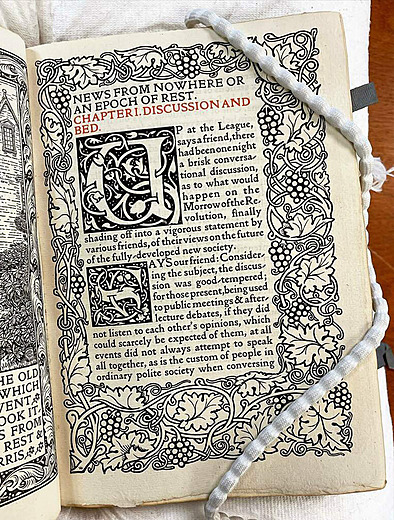 HE OLD
WHICH
VENT,
OOK IT
S FROM
REST &
RRIS,
NEWS FROM NOWHERE OR
AN EPOCH OF REST.
CHAPTER I. DISCUSSION AND
BED.
UP at the League,
says a friend, there
had been one night
a brisk conversa-
tional discussion,
as to what would
happen on the
Morrow of the Re-
volution, finally
shading off into a vigorous statement by
various friends, of their views on the future
of the fully-developed new society.
SAYS our friend: Consider-
ing the subject, the discus-
sion was good-tempered;
for those present, being used
to public meetings & after-
lecture debates, if they did
not listen to each other's opinions, which
could scarcely be expected of them, at all
events did not always attempt to speak
all together, as is the custom of people in
ordinary polite society when conversing